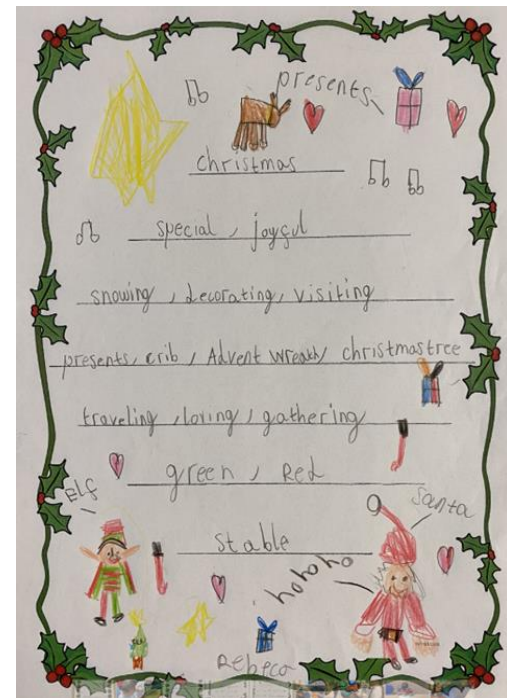 presents
christmas
special, joyful
snowing, decorating, visiting
presents, crib, Advent wreath, christmastree
traveling, loving, gathering
green, Red
Elf
Santa
stable
hohoho
Rebeca